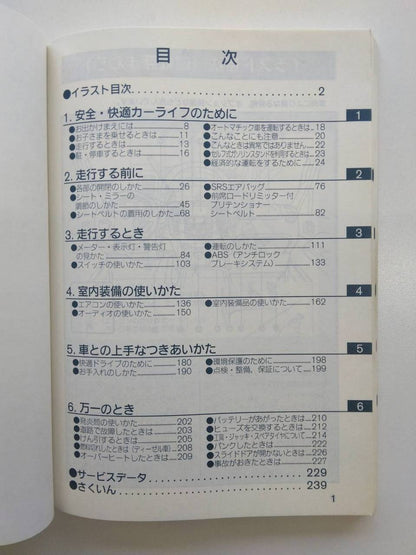 目 次
●イラスト目次 2
1. 安全・快適カーライフのために 1
●お出かけまえには 8
●お子さまを乗せるときは 11
●走行するときは 13
●駐・停車するときは 16
●オートマチック車を運転するときは 18
●こんなことにも注意 20
●こんなときは異常ではありません 22
●セルフ式ガソリンスタンドを利用するときは 23
●経済的な運転をするために 24
2. 走行する前に 2
●各部の開閉のしかた 26
●シート・ミラーの
調節のしかた 45
●シートベルトの着用のしかた 68
●SRSエアバッグ 76
●前席ロードリミッター付
プリテンショナー
シートベルト 82
3. 走行するとき 3
●メーター・表示灯・警告灯
の見かた 84
●スイッチの使いかた 103
●運転のしかた 111
●ABS(アンチロック
ブレーキシステム) 133
4. 室内装備の使いかた 4
●エアコンの使いかた 136
●オーディオの使いかた 150
●室内装備品の使いかた 162
5. 車との上手なつきあいかた 5
●快適ドライブのために 180
●お手入れのしかた 190
●環境保護のために 198
●点検・整備、保証について 199
6. 万一のとき 6
●発炎筒の使いかた 202
●道路で故障したときは 203
●けん引するときは 205
●燃料切れしたときは(ディーゼル車) 208
●オーバーヒートしたときは 209
●バッテリーがあがったときは 210
●ヒューズを交換するときは 212
●工具・ジャッキ・スペアタイヤについて 214
●パンクしたときは 222
●スライドドアが開かないときは 226
●事故がおきたときは 227
●サービスデータ 229
●さくいん 239
1